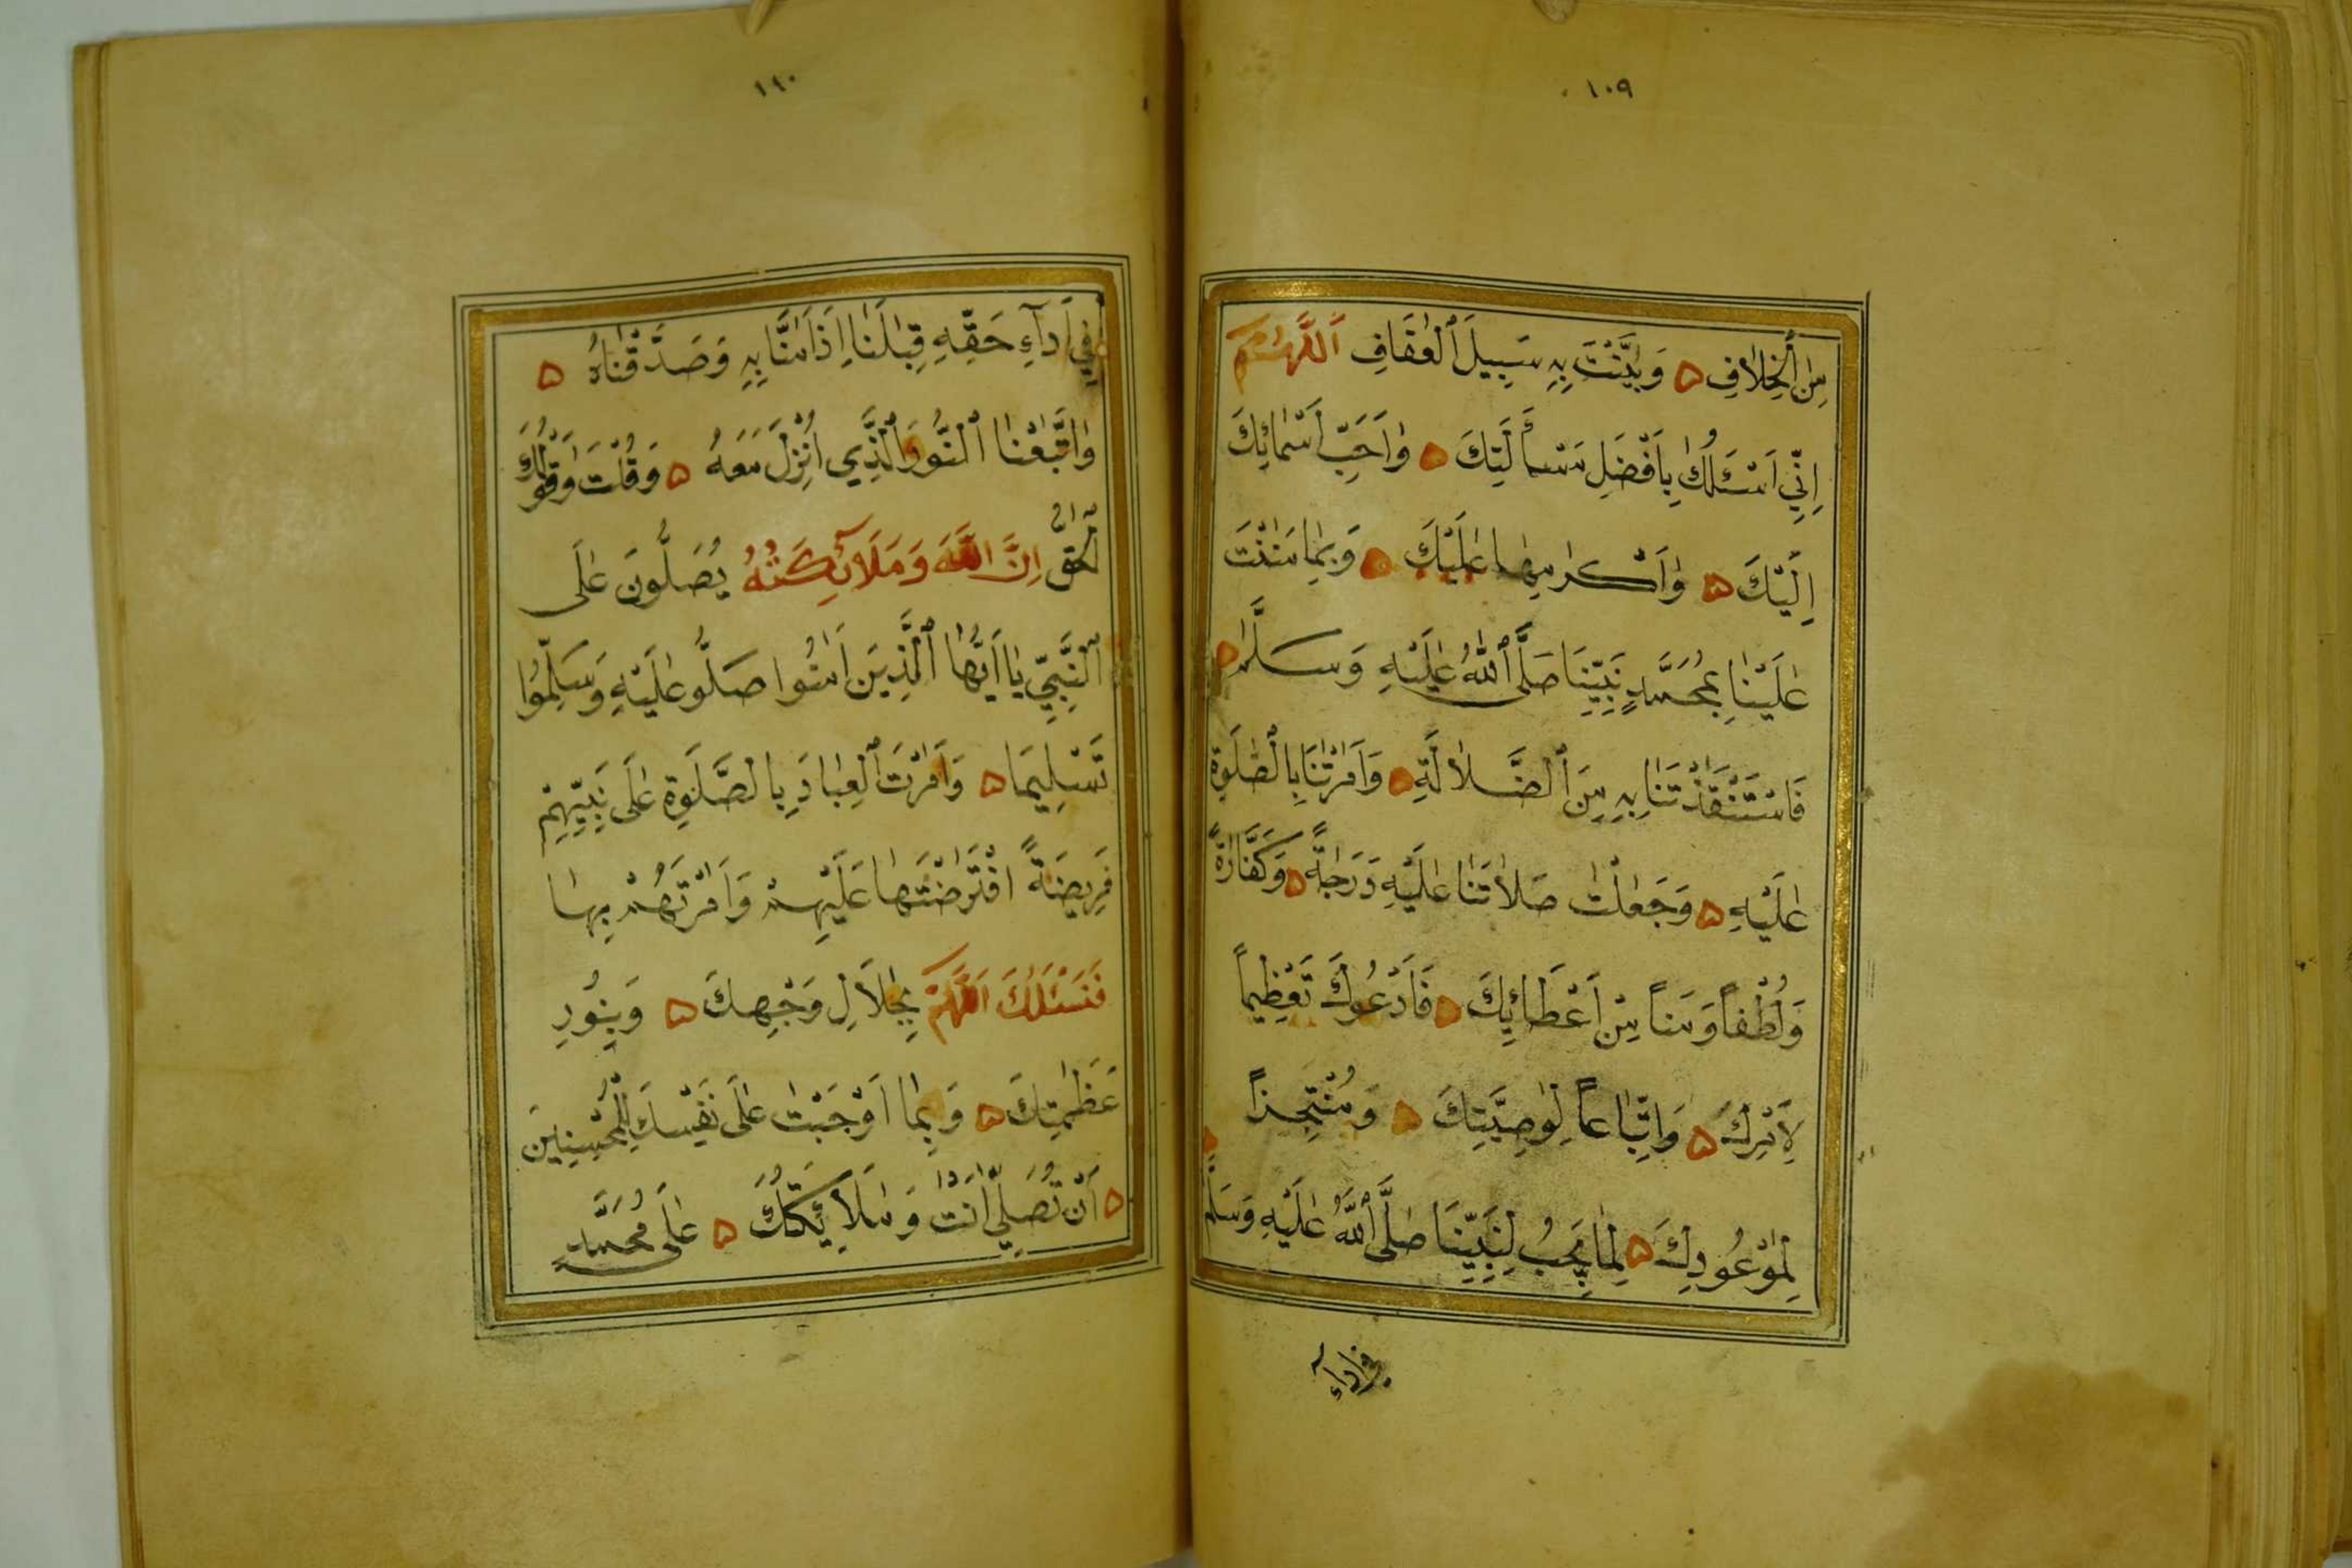 ١٠٩
مِنَ الْخِلَافِ وَبَيَّنْتَ بِهِ سَبِيلَ الْعَفَافِ اَللّٰهُمَّ
اِنِّي اَسْئَلُكَ بِاَفْضَلِ مَسْأَلَتِكَ وَاَحَبِّ اَسْمَائِكَ
اِلَيْكَ وَاَكْرَمِهَا عَلَيْكَ وَبِمَا مَنَنْتَ
عَلَيْنَا بِمُحَمَّدٍ نَبِيِّنَا صَلَّى اللّٰهُ عَلَيْهِ وَسَلَّمَ
فَاسْتَنْقَذْتَنَا بِهِ مِنَ الضَّلَالَةِ وَاَمَرْتَنَا بِالصَّلَوةِ
عَلَيْهِ وَجَعَلْتَ صَلَاتَنَا عَلَيْهِ دَرَجَةً وَكَفَّارَةً
وَلُطْفاً وَمَنّاً مِنْ اَعْطَائِكَ فَاَدْعُوكَ تَعْظِيماً
لِاَمْرِكَ وَاتِّبَاعاً لِوَصِيَّتِكَ وَمُنْتَجِزاً
لِمَوْعُودِكَ لِمَا يَجِبُ لِنَبِيِّنَا صَلَّى اللّٰهُ عَلَيْهِ وَسَلَّمَ
في اداء
١١٠
فِي اَدَآءِ حَقِّهِ قِبَلَنَا اِذْ اٰمَنَّا بِهِ وَصَدَّقْنَاهُ
وَاتَّبَعْنَا النُّورَ الَّذِي اُنْزِلَ مَعَهُ وَقُلْتَ وَقَوْلُكَ
الْحَقُّ اِنَّ اللّٰهَ وَمَلَآئِكَتَهُ يُصَلُّونَ عَلَى
النَّبِيِّ يَا اَيُّهَا الَّذِينَ اٰمَنُوا صَلُّو عَلَيْهِ وَسَلِّمُوا
تَسْلِيمَا وَاَمَرْتَ الْعِبَادَ بِالصَّلَوةِ عَلَى نَبِيِّهِمْ
فَرِيضَةً افْتَرَضْتَهَا عَلَيْهِمْ وَاَمَرْتَهُمْ بِهَا
فَنَسْئَلُكَ اَللّٰهُمَّ بِجَلَالِ وَجْهِكَ وَبِنُورِ
عَظَمَتِكَ وَبِمَا اَوْجَبْتَ عَلَى نَفْسِكَ لِلْمُحْسِنِينَ
اَنْ تُصَلِّيَ اَنْتَ وَمَلَائِكَتُكَ عَلَى مُحَمَّدٍ